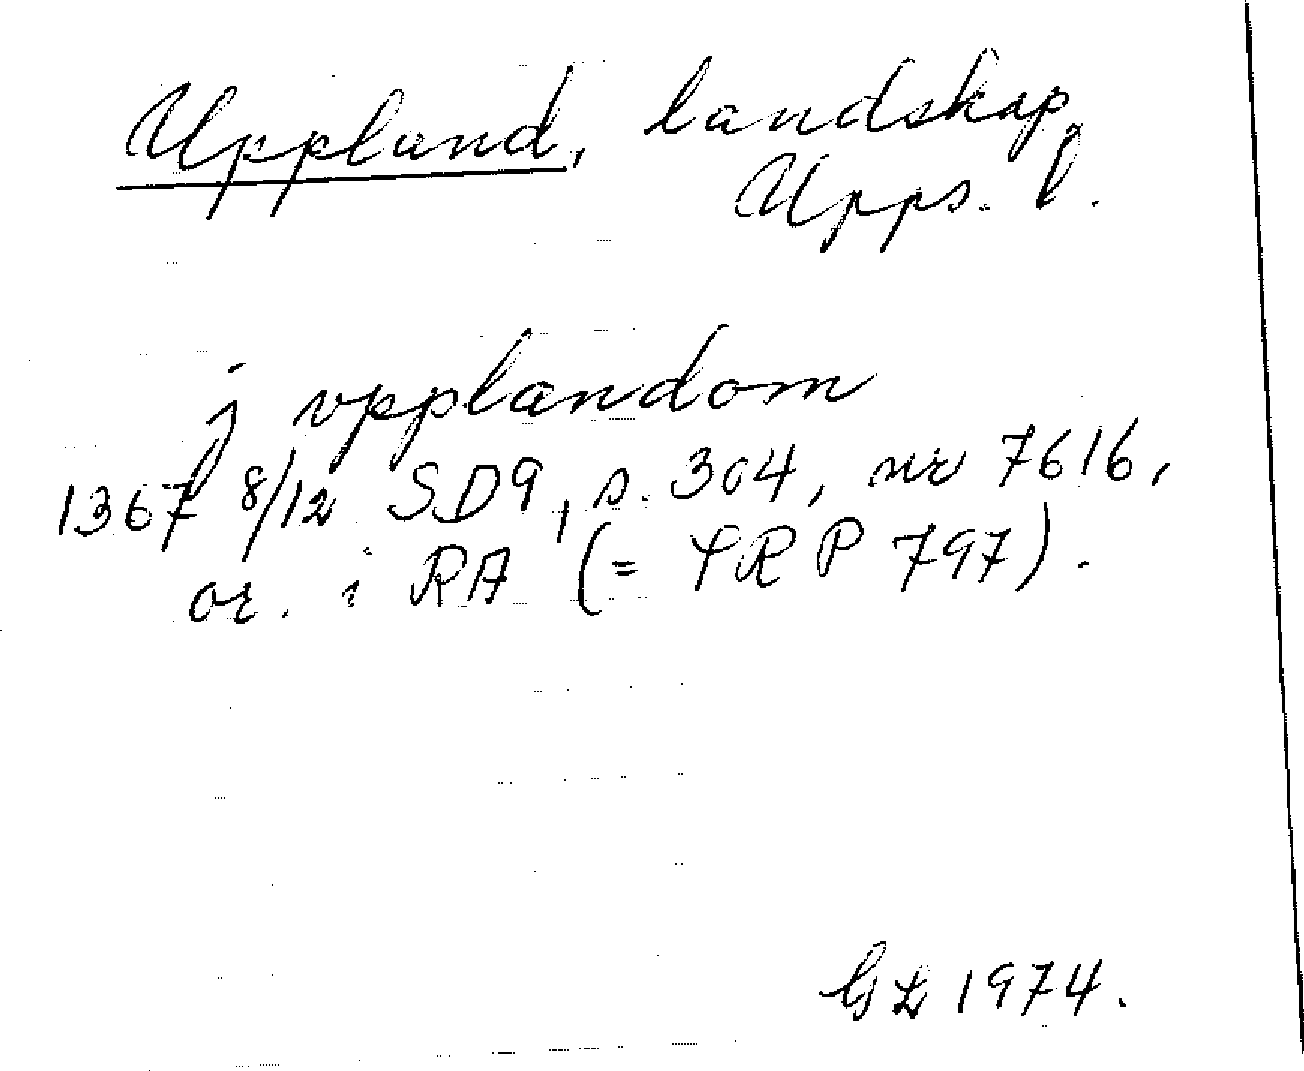 Uppland, landskap,
Upps. l.
j vpplandom
1367 8/12 SD9, s. 304, nr 7616,
or. i RA (= SRP 797).
GL 1974.